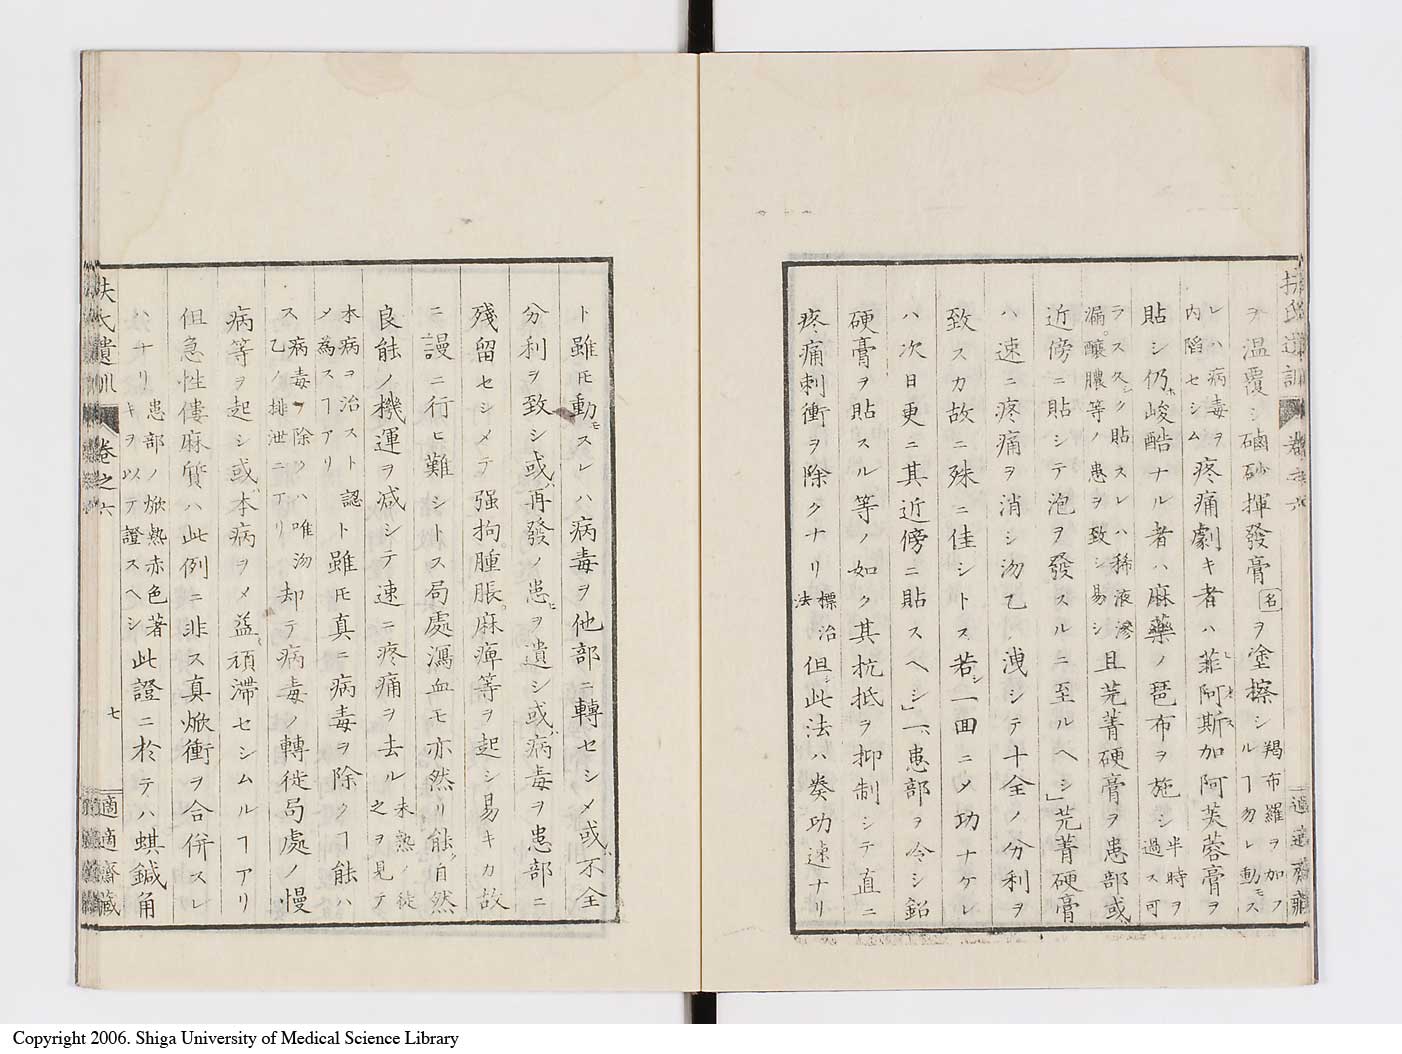 ヲ温覆シ磠砂揮發膏名ヲ塗擦シ羯布羅ヲ加フルヿ勿レ動モス
レハ病毒ヲ内陷セシム疼痛劇キ者ハ菲阿斯加阿芙蓉膏ヲ
貼シ仍ホ峻酷ナル者ハ麻藥ノ琶布ヲ施シ半時ヲ過ス可
ラス久シク貼スレハ稀液滲漏釀膿等ノ患ヲ致シ易シ且芫菁硬膏ヲ患部或ハ
近傍ニ貼シテ泡ヲ發スルニ至ルヘシ」芫菁硬膏
ハ速ニ疼痛ヲ消シ沕乙洩シテ十全ノ分利ヲ
致スカ故ニ殊ニ佳シトス若シ一回ニメ功ナケレ
ハ次日更ニ其近傍ニ貼スヘシ」一患部ヲ冷シ鉛
硬膏ヲ貼スル等ノ如ク其抗抵ヲ抑制シテ直ニ
疼痛刺衝ヲ除クナリ標治法但シ此法ハ奏功速ナリ
扶氏遺訓 卷之六 適適齋藏
ト雖モ動モスレハ病毒ヲ他部ニ轉セシメ或ハ不全
分利ヲ致シ或ハ再發ノ患ヒヲ遺シ或ハ病毒ヲ患部ニ
殘留セシメテ强拘腫脹麻痺等ヲ起シ易キカ故
ニ謾ニ行ヒ難シトス局處瀉血モ亦然リ能ク自然
良能ノ機運ヲ减シテ速ニ疼痛ヲ去ル未熟ノ徒之ヲ見テ
本病ヲ治スト認メ為スヿアリト雖モ真ニ病毒ヲ除クヿ能ハ
ス病毒ヲ除クハ唯沕乙ノ排泄ニ在リ却テ病毒ノ轉徙局處ノ慢
病等ヲ起シ或ハ本病ヲメ益頑滯セシムルヿアリ
但急性僂麻質ハ此例ニ非ス真焮衝ヲ合併スレ
ハナリ患部ノ焮熱赤色著キヲ以テ證スヘシ此證ニ於テハ蜞鍼角
扶氏遺訓 卷之六 七 適適齋藏
Copyright 2006. Shiga University of Medical Science Library